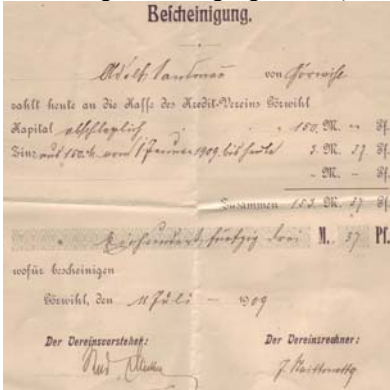 Bescheinigung.
Adolf von Görwihl
zahlt heute an die Kasse des Kredit-Vereins Görwihl
Kapital abschläglich 150 M. -- Pf.
Zins aus 150 M. vom 1 Januar 1909 bis heute 3. M. 37 Pf.
- M. - Pf.
Zusammen 153. M. 37 Pf.
Einhundert fünfzig drei M. 37 Pf.
wofür bescheinigen
Görwihl, den 11 Juli - 1909
Der Vereinsvorsteher: Der Vereinsrechner: